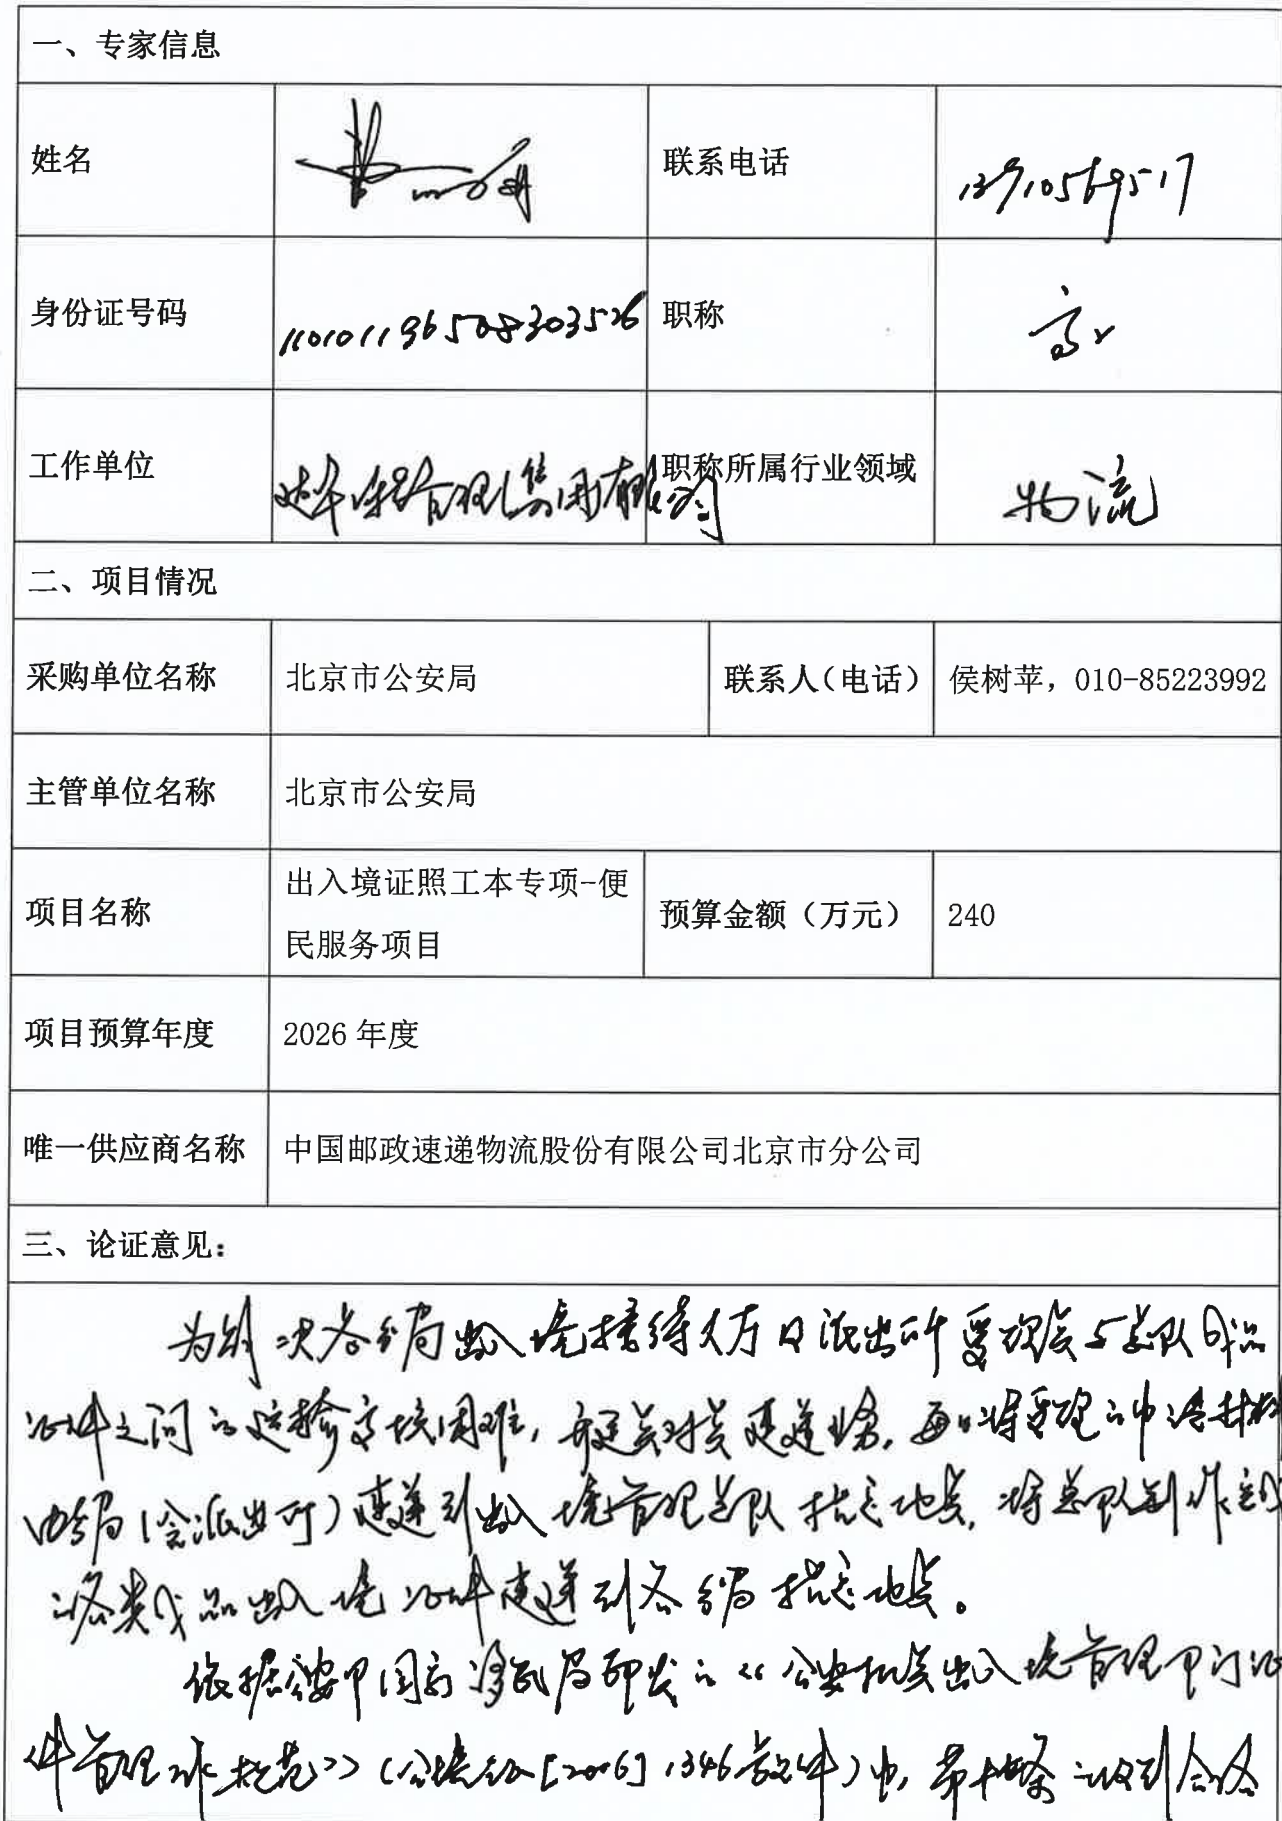 一、专家信息
姓名 联系电话 13910569517
身份证号码 110101196508303526 职称 高工
工作单位 管理集团有限公司 职称所属行业领域 物流
二、项目情况
采购单位名称 北京市公安局 联系人（电话） 侯树苹，010-85223992
主管单位名称 北京市公安局
项目名称 出入境证照工本专项-便
民服务项目 预算金额（万元） 240
项目预算年度 2026年度
唯一供应商名称 中国邮政速递物流股份有限公司北京市分公司
三、论证意见：
为解决各分局出入境接待大厅及派出所受理点与总队成品
证件之间的运输交接困难，开通点对点速递业务，每日将受理的申请材料
由分局（含派出所）速递到出入境管理总队指定地点，将总队制作完成
的各类成品出入境证件速递到各分局指定地点。
依据公安部国家移民局印发的《公安机关出入境管理部门证
件管理工作规范》（公境[2006]1346号文件）中，第十条 收到